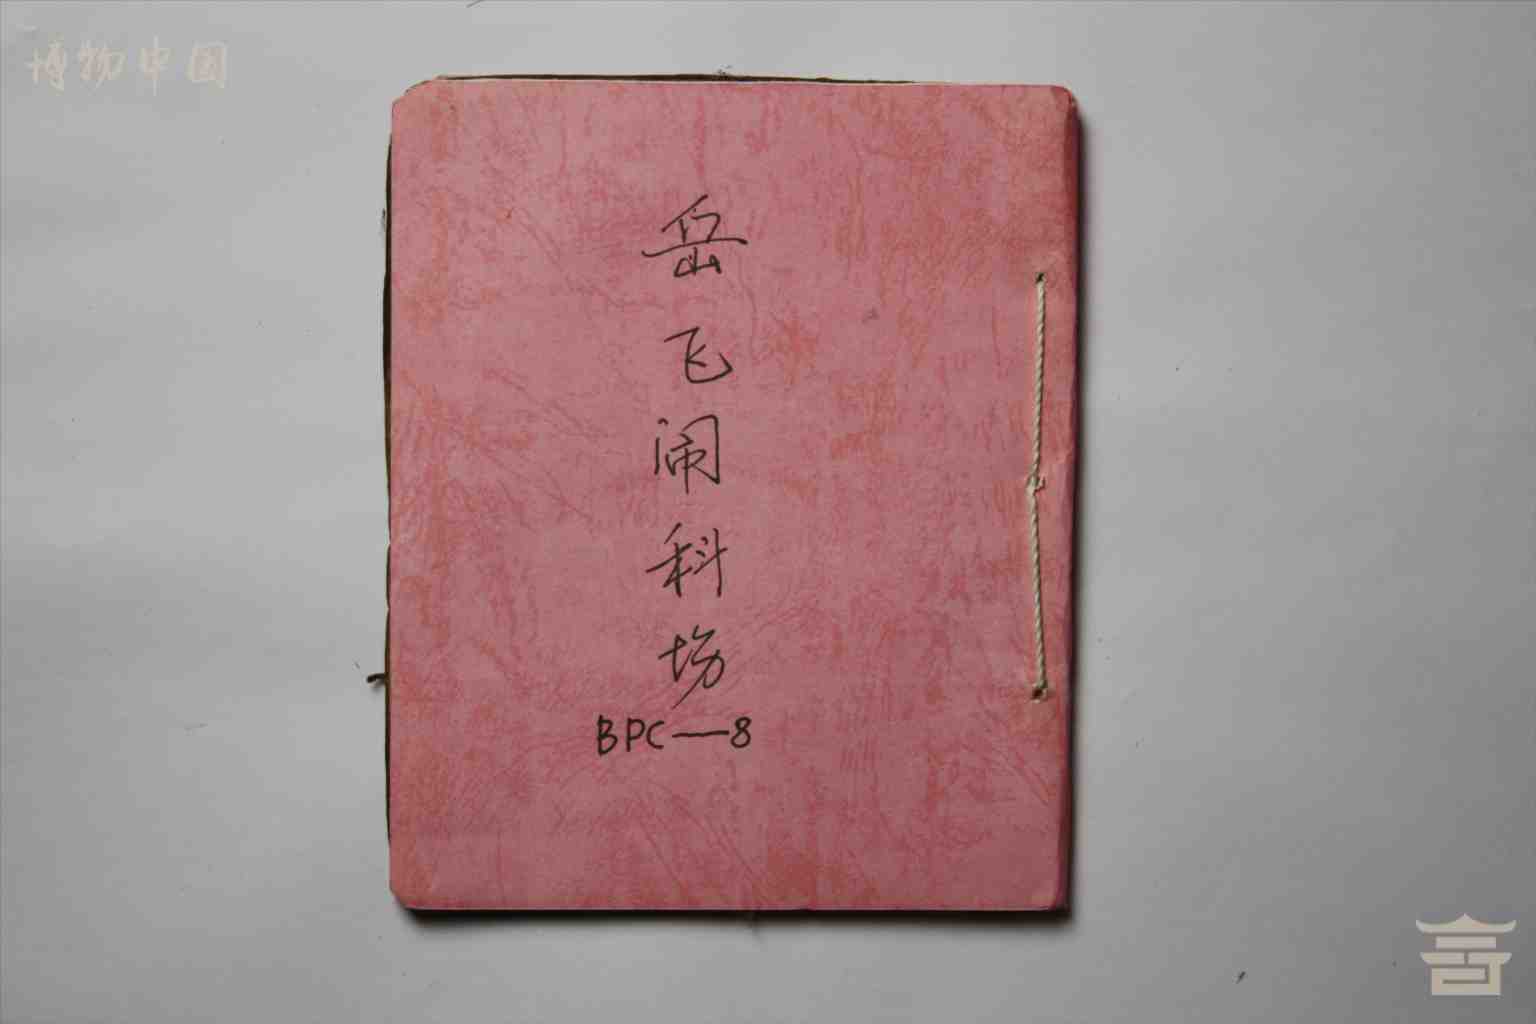 博物中国
岳飞闹科场
BPC—8